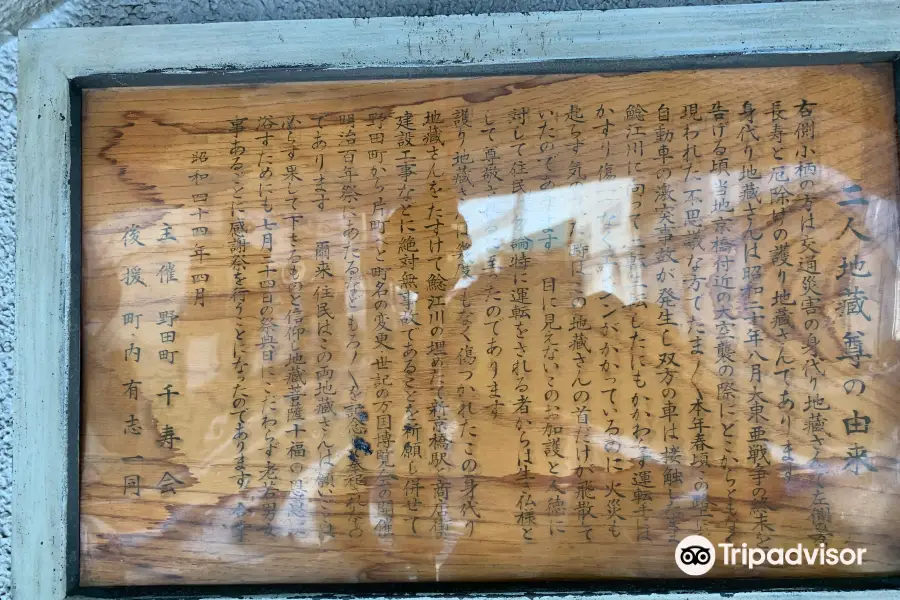 二人地蔵尊の由来
右側小柄の方は交通災害の身代り地蔵さんで左側の
長寿と厄除けの護り地蔵さんであります
身代り地蔵さんは昭和二十年八月大東亜戦争の終末を
告げる頃当地京橋付近の大空襲の際にどこからともなく
現われた不思議な方でたまたま本年春頃
自動車の激突事故が発生し双方の車は接触したまま
鯰江川に向って したにもかかわらず運転手は
かすり傷一つなく ンがかかっているのに火災も
起らず気の 地蔵さんの首だけが飛散して
いたので 目に見えないこのお加護と人徳に
対して住民は 論特に運転をされる者からは生仏様と
して尊敬さ たのであります
護り地蔵さ もなく傷つかれたこの身代り
地蔵さんをたすけて鯰江川の埋めたて新京橋駅 商店街
建設工事などに絶対無事故であることを祈願し併せて
野田町から片町へと町名の変更 世記の万国博覧会の開催
明治百年祭にあたるなどもろもろを記念し
であります 爾来住民はこの両地蔵さんは願いごとは
必らず果して下さるものと信仰し地蔵菩薩十福の恩恵に
浴すためにも七月二十四日の祭日にこだわらず老若男女
事あるごとに感謝祭を行うことになったのであります
昭和四十四年四月
主催 野田町 千寿会
後援 町内有志一同
Tripadvisor